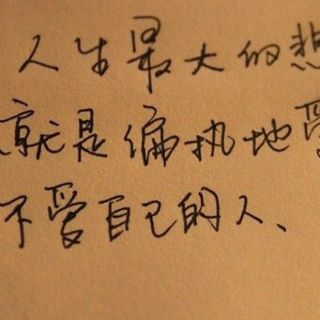 人生最大的悲
就是偏执地爱
不爱自己的人、